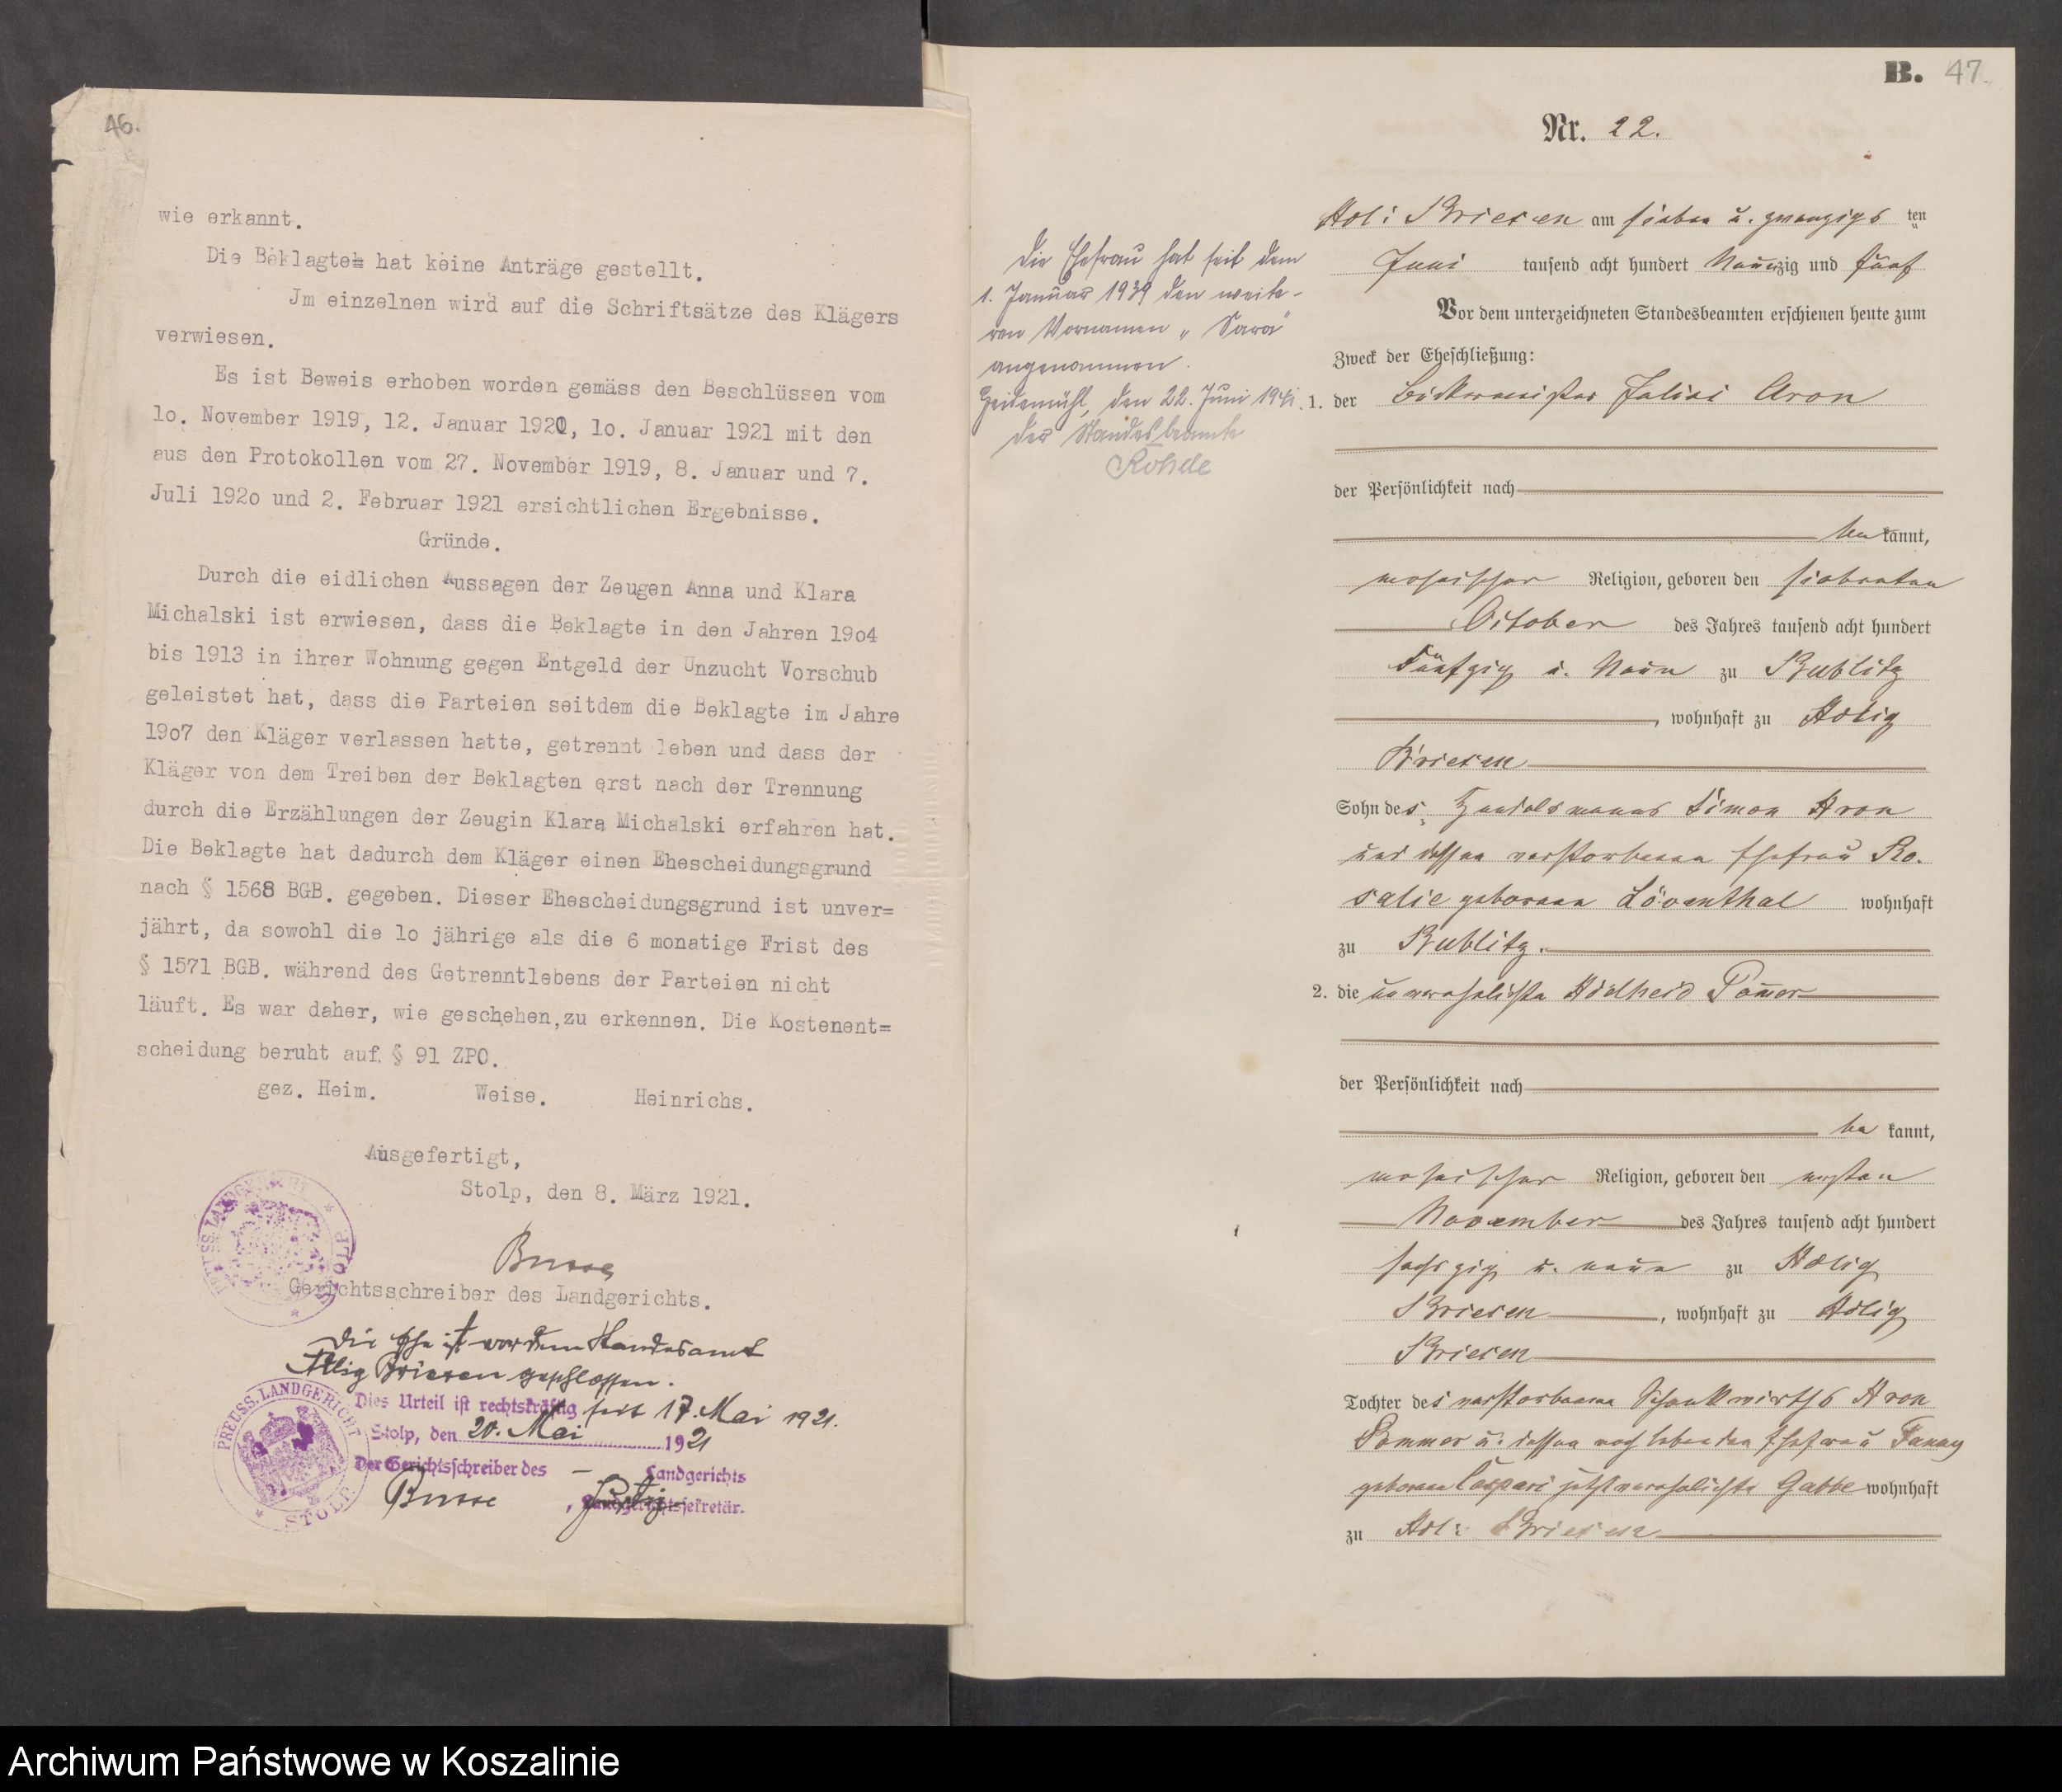 46.
wie erkannt.
Die Beklagte hat keine Anträge gestellt.
Jm einzelnen wird auf die Schriftsätze des Klägers
verwiesen.
Es ist Beweis erhoben worden gemäss den Beschlüssen vom
lo. November 1919, 12. Januar 1920, lo. Januar 1921 mit den
aus den Protokollen vom 27. November 1919, 8. Januar und 7.
Juli 192o und 2. Februar 1921 ersichtlichen Ergebnisse.
Gründe.
Durch die eidlichen Aussagen der Zeugen Anna und Klara
Michalski ist erwiesen, dass die Beklagte in den Jahren 19o4
bis 1913 in ihrer Wohnung gegen Entgeld der Unzucht Vorschub
geleistet hat, dass die Parteien seitdem die Beklagte im Jahre
19o7 den Kläger verlassen hatte, getrennt leben und dass der
Kläger von dem Treiben der Beklagten erst nach der Trennung
durch die Erzählungen der Zeugin Klara Michalski erfahren hat.
Die Beklagte hat dadurch dem Kläger einen Ehescheidungsgrund
nach § 1568 BGB. gegeben. Dieser Ehescheidungsgrund ist unver=
jährt, da sowohl die lo jährige als die 6 monatige Frist des
§ 1571 BGB. während des Getrenntlebens der Parteien nicht
läuft. Es war daher, wie geschehen, zu erkennen. Die Kostenent=
scheidung beruht auf § 91 ZPO.
gez. Heim. Weise. Heinrichs.
Ausgefertigt,
Stolp, den 8. März 1921.
Busse
Gerichtsschreiber des Landgerichts.
PREUSS. LANDGERICHT * STOLP *
Die Ehe ist vor dem Standesamt
Adlig Briesen geschlossen.
Dies Urteil ist rechtskräftig seit 17. Mai 1921.
Stolp, den 20. Mai 1921
Der Gerichtsschreiber des – Landgerichts
Busse , Landgerichtssekretär.
PREUSS. LANDGERICHT * STOLP *
B. 47.
Nr. 22.
Die Ehefrau hat seit dem
1. Januar 1939 den weite-
ren Vornamen „Sara"
angenommen.
den 22. Juni 1941.
Der Standesbeamte
Rohde
Adl: Briesen am sieben u. zwanzigsten
Juni tausend acht hundert Neunzig und fünf
Vor dem unterzeichneten Standesbeamten erschienen heute zum
Zweck der Eheschließung:
1. der Aron
der Persönlichkeit nach
be kannt,
mosaischer Religion, geboren den siebenten
October des Jahres tausend acht hundert
Fünfzig u. Neun zu Bublitz
, wohnhaft zu Adlig
Briesen
Sohn des Handelsmanns Simon Aron
und dessen verstorbenen Ehefrau Ro-
salie geborene Löventhal wohnhaft
zu Bublitz.
2. die unverehelichte Adelheid Pomer
der Persönlichkeit nach
be kannt,
mosaischer Religion, geboren den ersten
November des Jahres tausend acht hundert
sechszig u. neun zu Adlig
Briesen , wohnhaft zu Adlig
Briesen
Tochter des verstorbenen Schankwirths Aron
Pommer u. dessen noch lebenden Ehefrau Fanny
geborene Caspari jetzt verehelichte Gabbe wohnhaft
zu Adl: Briesen
Archiwum Państwowe w Koszalinie